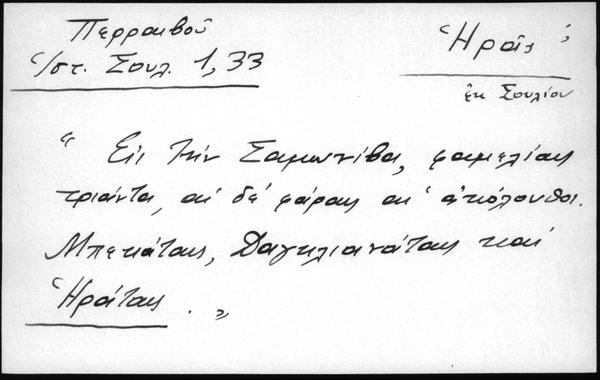 Περραιβοῦ
Ἱστ. Σουλ. 1,33
Ἡραῖς
ἐκ Σουλίου
"Εἰς τὴν Σαμωνίβα, φαμελίαις
τριάντα, αἱ δὲ φάραις αἱ ἀκόλουθοι.
Μπεκάταις, Δαγκλιανάταις καὶ
Ἡράταις. "